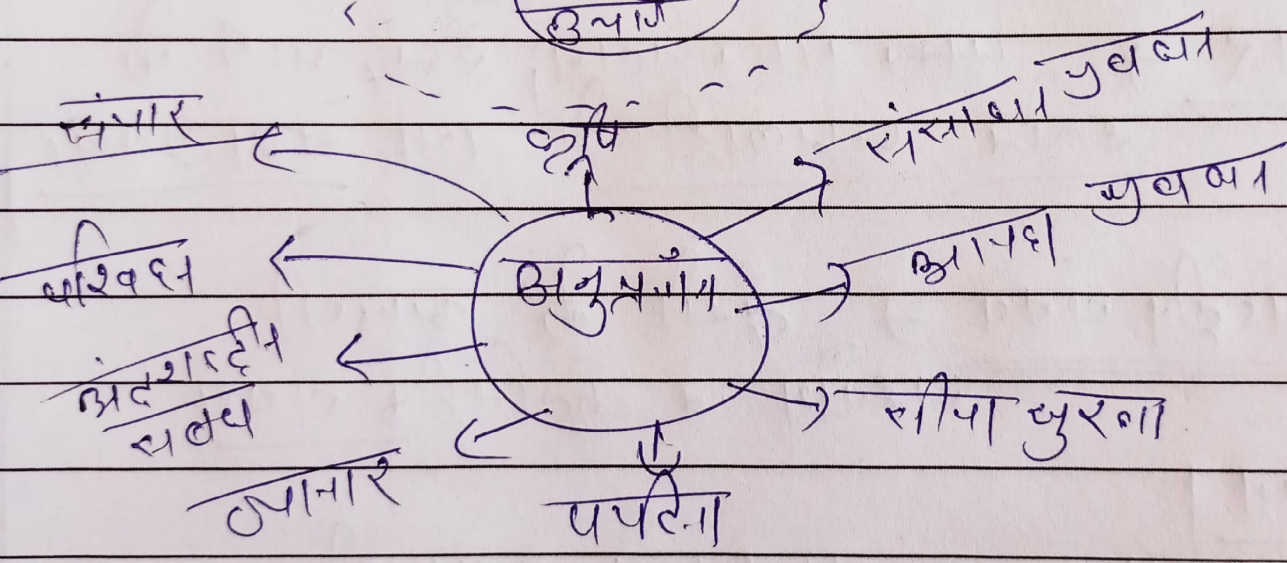 उद्योग
संचार
कृषि
संसाधन प्रबंधन
परिवहन
अनुप्रयोग
आपदा प्रबंधन
अंतर्राष्ट्रीय
संबंध
सीमा सुरक्षा
व्यापार
पर्यटन